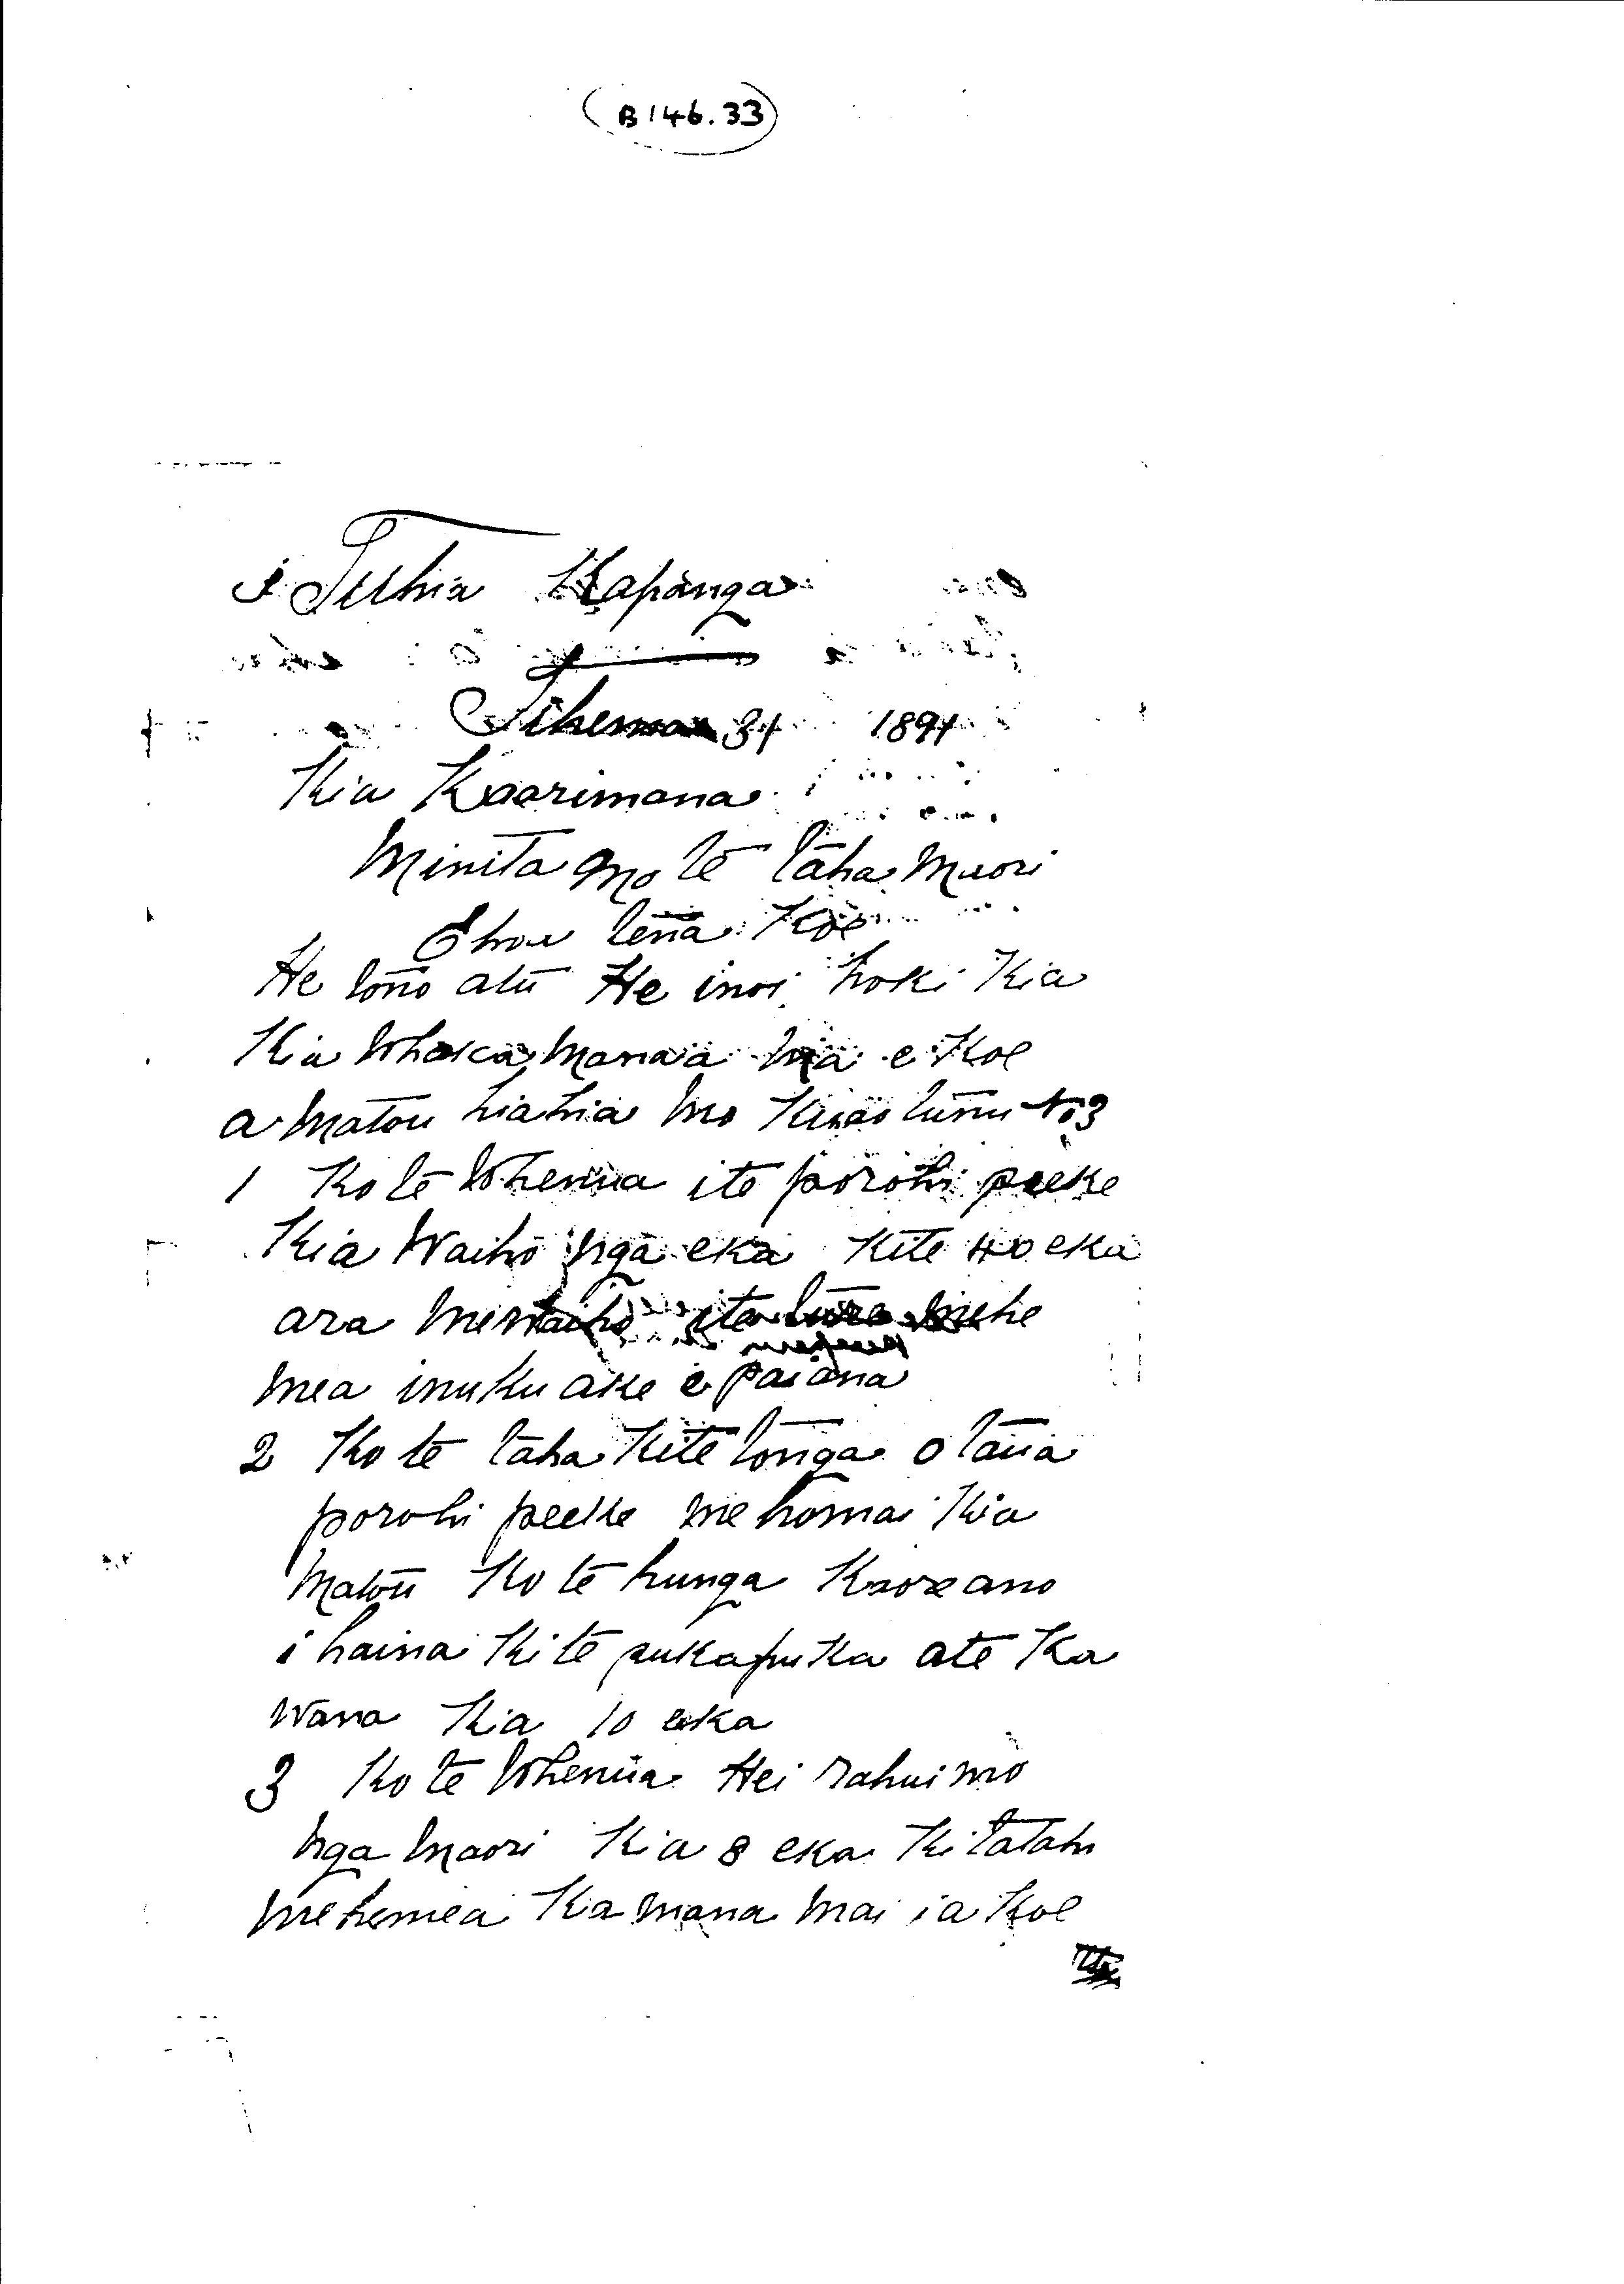 B146.33
I Tuhia Kapanga
Tihema 31 1891
Kia Kaarimana
Minita mo te taha Maori
Ehoa tena Koe
He tono atu He inoi hoki Kia
Kia Whaka Mana a Mia e Koe
a Matou hiahia mo Kuaotunu No3
1 Ko te Whenua ite porohi peeke
Kia Waiho nga eka Kite 40 eka
ara MeWaiho ite mehe
mea inuku ake e paiana
2 Ko te taha Kite tonga o taua
porohi peeke me homai Kia
Matou Ko te hunga Kaoreano
i haina Ki te pukapuka ate Ka
wana Kia 10 eka
3 Ko te Whenua Hei rahui mo
nga Maori Kia 8 eka Ki tatahi
mehemea Ka mana mai ia Koe